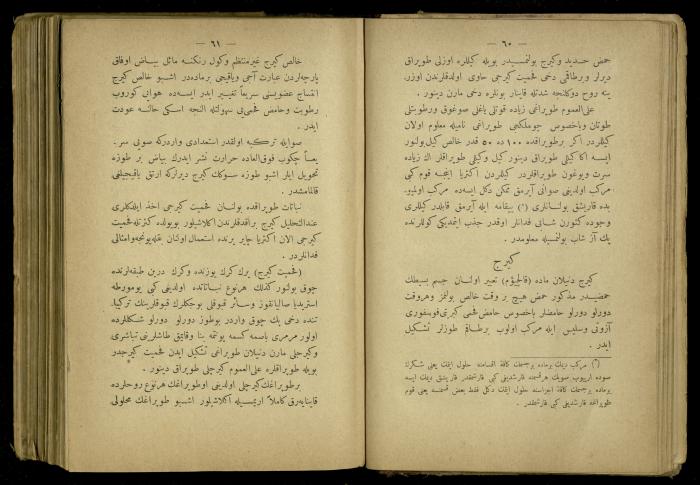 — ٦٠ —
حمض حديد وكيرج بولنمسيدر بويله كيللره اوزلى طوبراق
ديرلر وبرطاقى دخى فحميت كيرجى حاوى اولدقلرندن اوزرـ
ينه روح دوكلنجه شدتله قاينار بونلره دخى مارن دينور .
على العموم طوبراغى زياده قوتلى ياغلى صوغوق ورطوبتلى
طوتان وباخصوص چوملكجى طوبراغى ناميله معلوم اولان
كيللردر اكر برطوبراقده ١٠٠ ده ٥٠ قدر خالص كيل بولنور
ايسه اكا كيللى طوبراق دينور كيل وكيللى طوبراقلر اك زياده
سرت ويوغون طوبراقلردر كيللردن اكثريا اينجه قوم كبى
مركب اولدينى صوانى آيرمق ممكن دكل ايسه ده مركب اولميوـ
بده قاريشق بولنانلرى (*) ييقامه ايله آيرمق قابلدر كيللرى
وجوده كتورن شبانى فدانلر اوقدر جذب ايتمديكى كوللرنده
پك آز شاب بولنمسيله معلومدر .
كيرج
كيرج دنيلان ماده (قالجيوم) تعبير اولنان جسم بسيطك
حمضيدر مذكور حمض هيچ بر وقت خالص بولنمز وهروقت
دورلو دورلو حامضلر باخصوص حامض فحمى كبرى فوسفورى
آزوتى وسليس ايله مركب اولوب برطاقم طوزلر تشكيل
ايدر .
(*) مركب ديمك برماده برجسمك كافه اقسامنه حلول ايتمك يعنى شكرك
صوده ارييوب صويك هرقسمنه قارشديغى كبى قارشمقدر قاريشق ديمك ايسه
برماده برجسمك كافه اجزاسنه حلول ايتمك دكل فقط بعض قسمنه يعنى قوم
طوبراغه قارشديغى كبى قارشمقدر .
— ٦١ —
خالص كيرج غيرمنتظم وكول رنكنه مائل بياض اوفاق
پارچه لردن عبارت آجى وياقيجى برماده در اشبو خالص كيرج
انساج عضويه نى سريعاً تغيير ايدر ايسه ده هوايى كوروب
رطوبت وحامض فحمى يى سهولتله آلنجه اسكى حالنه عودت
ايدر .
صوايله تركيبه اولقدر استعدادى واردركه صويى سرـ
يعاً چكوب فوق العاده حرارت نشر ايدرك بياض بر طوزه
تحويل ايلر اشبو طوزه سوكك كيرج ديرلركه ارتق ياقيجيلغى
قالمامشدر .
نباتات طوبراقده بولنان فحميت كيرجى اخذ ايلدكلرى
عندالتحليل كيرج براقدقلرندن اكلاشيلور بويولده كنزتله فحميت
كيرجى الان اكثريا چاير يرنده استعمال اولنان بغله يونجه وامثالى
فدانلردر .
(فحميت كيرج) يرك كرك يوزنده وكرك درين طبقه لرنده
چوق بولنور كذلك هرنوع نباتاتده اولدينى كبى يومورطه
استريديا صاليانقوز وسائر قبوقلى بوجكلرك قبوقلرينك تركيبـ
ـنده دخى پك چوق واردر بوطوز دورلو دورلو شكللرده
اولور مرمرى باصمه كسمه يونتمه بنا وقايتمق طاشلرينى تباشيرى
وكيرجلى مارن دنيلان طوبراغى تشكيل ايدن فحميت كيرجدر
بويله طوبراقلره على العموم كيرجلى طوبراق دينور .
برطوبراقك كيرجلى اولدينى اوطوبراغك هرنوع روحلرده
قاينايه رق كاملاً اريمسيله آكلاشيلور اشبو طوبراغك محلولى